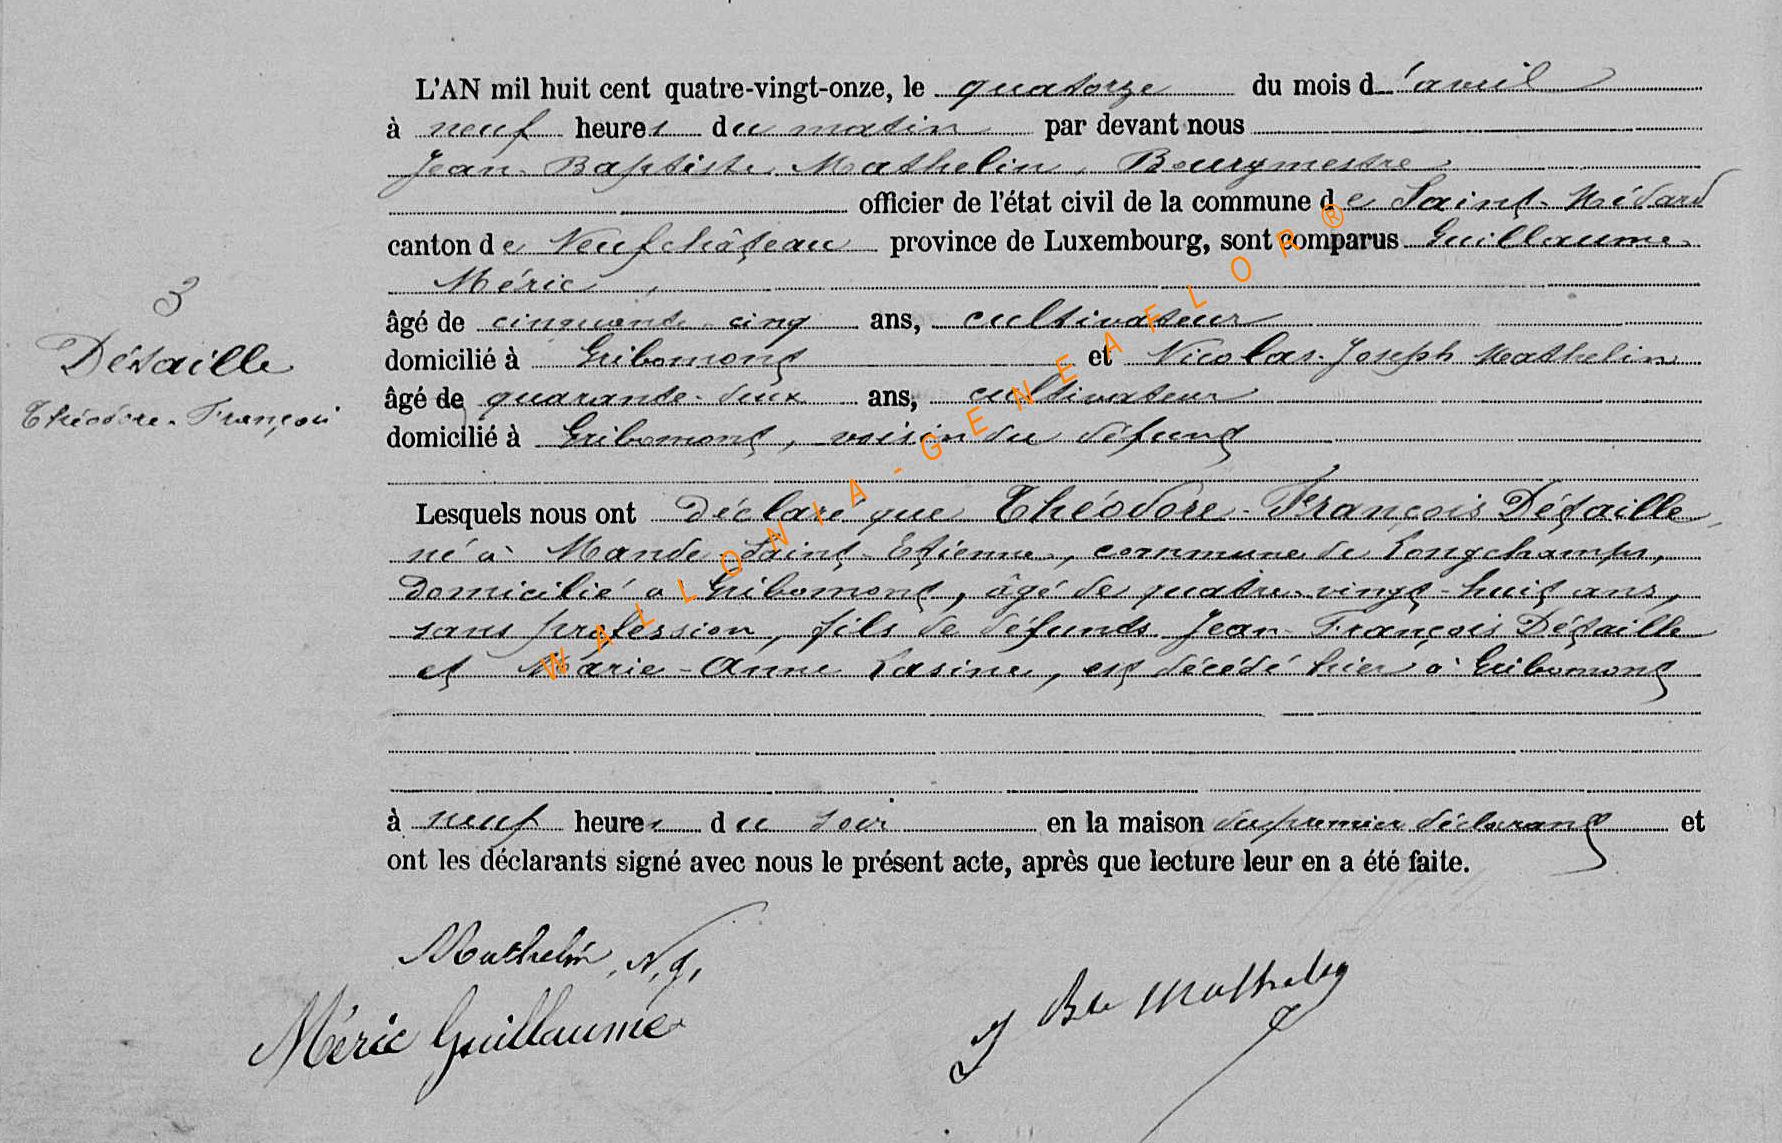 L'AN mil huit cent quatre-vingt-onze, le quatorze du mois d'avril
à neuf heures du matin par devant nous
Jean-Baptiste Mathelin, Bourgmestre
officier de l'état civil de la commune de Saint-Médard
canton de Neufchâteau province de Luxembourg, sont comparus Guillaume
Méric,
âgé de cinquante-cinq ans, cultivateur
domicilié à Gribomont et Nicolas-Joseph Mathelin
âgé de quarante-deux ans, cultivateur
domicilié à Gribomont, voisin du défunt
3
Détaille
Théodore-François
Lesquels nous ont déclaré que Théodore-François Détaille,
né à Mande-Saint-Etienne, commune de Longchamps,
domicilié à Gribomont, âgé de quatre-vingt-huit ans,
sans profession, fils de défunts Jean-François Détaille
et Marie-Anne Lasine, est décédé hier à Gribomont
à neuf heures du soir en la maison du premier déclarant et
ont les déclarants signé avec nous le présent acte, après que lecture leur en a été faite.
Mathelin, N.J,
Méric Guillaume
J Bte Mathelin
WALLONIA-GENEAFLOR®